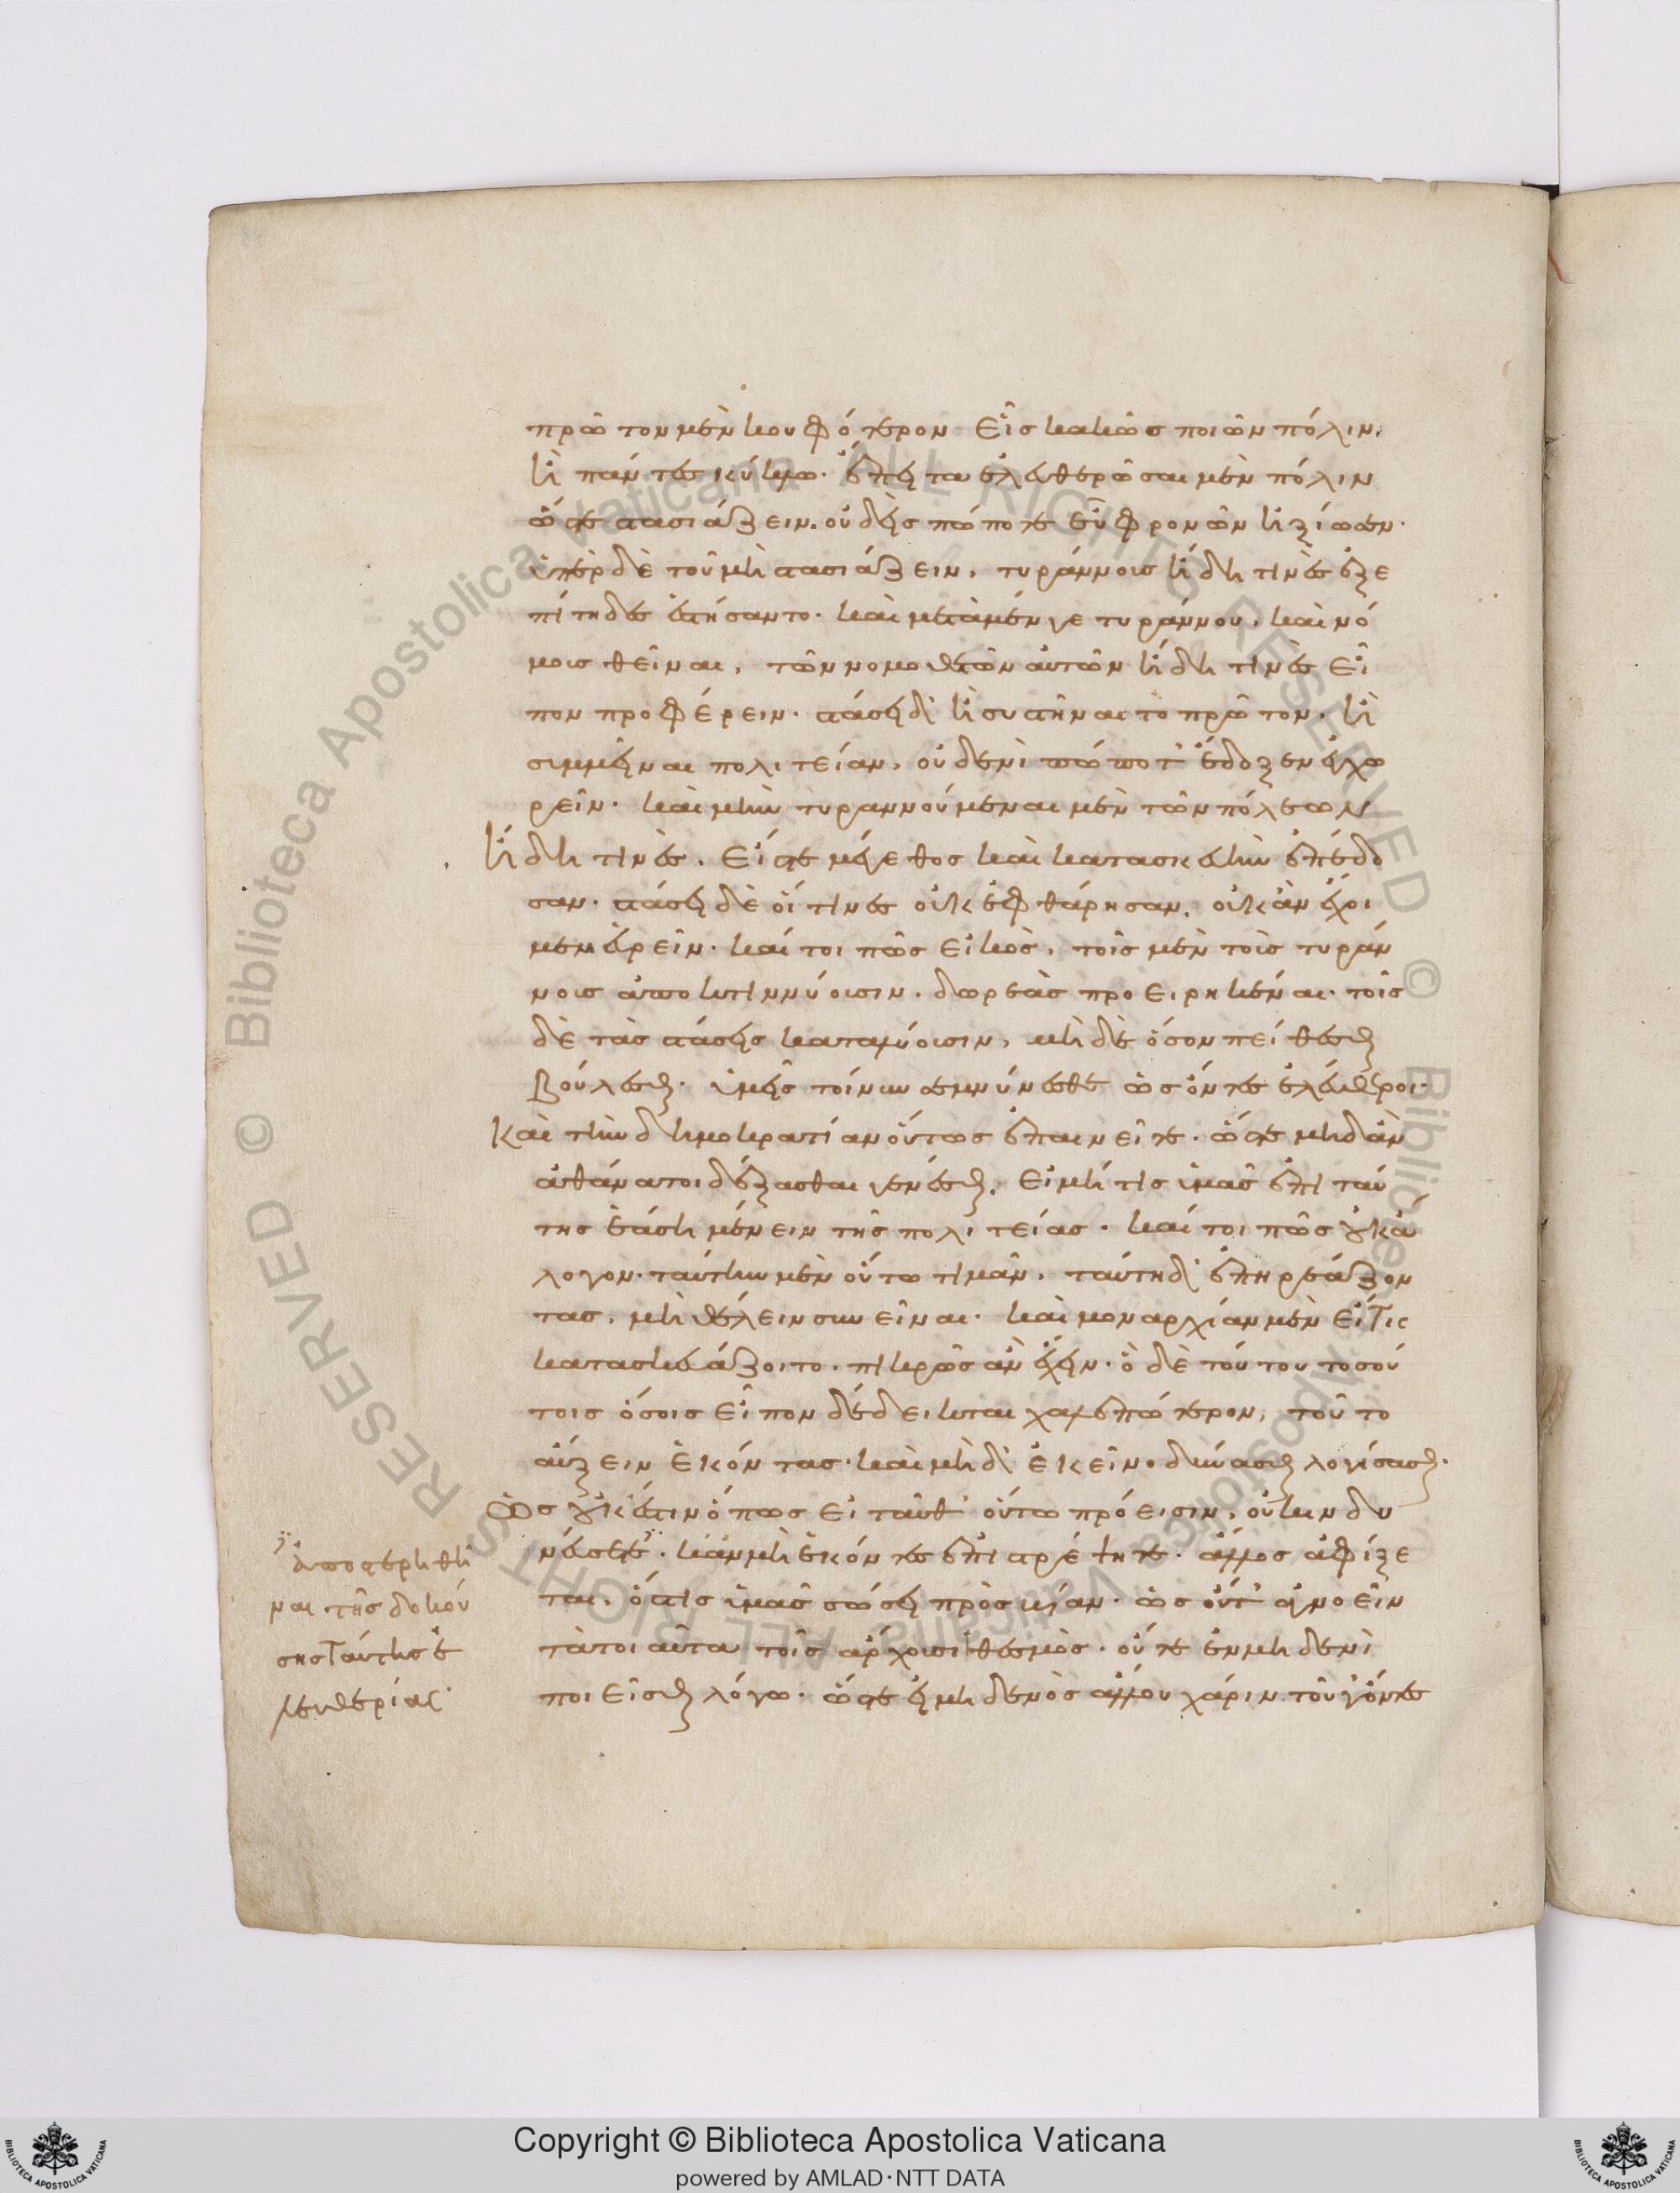 πρῶτον μὲν κουφότερον εἷς κακῶς ποιῶν πόλιν.
ἢ πάντες κύκλω. ἔπειτα ἐλευθερῶσαι μὲν πόλιν
ὥστε στασιάζειν. οὐδεὶς πώποτε εὖ φρονῶν ἠξίωσεν.
ὑπὲρ δὲ τοῦ μὴ στασιάζειν, τυράννους ἤδη τινὲς ἐξε
πίτηδες ἐστήσαντο. καὶ μετὰ μέν γε τυράννου, καὶ νό
μους θεῖναι, τῶν νομοθετῶν αὐτῶν ἤδη τινὲς εἷ
πον προφέρειν. στάσει δ' ἢ συστῆναι τὸ πρῶτον. ἢ
συμμεῖναι πολιτείαν, οὐδενὶ πώποτ' ἔδοξεν ἐγχω
ρεῖν. καὶ μὴν τυραννούμεναι μὲν τῶν πόλεων
ἤδη τινὲς. εἴς τε μέγεθος καὶ κατασκευὴν ἐπέδο
σαν. στάσει δὲ οἵτινες οὐκ ἐφθάρησαν, οὐκ ἂν ἔχοι
μεν εὑρεῖν. καίτοι πῶς εἰκὸς, τοῖς μὲν τοὺς τυράν
νους ἀποκτιννύουσιν. δωρεὰς προειρηκέναι. τοῖς
δὲ τὰς στάσεις καταλύουσιν, μηδὲ ὅσον πείθεσθαι
βούλεσθαι. ὑμεῖς τοίνυν σεμνύνεσθε ὡς ὄντες ἐλεύθεροι.
καὶ τὴν δημοκρατίαν οὕτως ἐπαινεῖτε. ὥστε μηδ' ἂν
ἀθάνατοι δέξασθαι γενέσθαι. εἰ μή τις ὑμᾶς ἐπὶ ταύ
της ἐάσει μένειν τῆς πολιτείας. καίτοι πῶς οὐκ ἄ
λογον. ταύτην μὲν οὕτω τιμᾶν. ταύτη δ' ἐπηρεάζον
τας, μὴ θέλειν συνεῖναι. καὶ μοναρχίαν μὲν εἴ τις
κατασκευάζοιτο. πικρῶς ἂν ἔχειν. ὃ δὲ τούτου τοσού
τοις ὅσοις εἶπον δέδεικται χαλεπώτερον, τοῦτο
αὔξειν ἑκόντας. καὶ μὴ δ' ἐκεῖνο δύνασθαι λογίσασθαι.
ὡς οὐκ ἔστιν ὅπως εἰ ταῦθ' οὕτω πρόεισιν, οὐ κινδυ
νεύσετε. κἂν μὴ ἑκόντες ἐπιστρέψητε. ἄλλος ἀφίξε
ται, ὅστις ὑμᾶς σώσει πρὸς βίαν. ὡς οὔτ' ἀγνοεῖν
τὰ τοιαῦτα τοῖς ἄρχουσι θεσμὸς. οὔτε ἐν μηδενὶ
ποιεῖσθαι λόγω. ὥστ' εἰ μηδενὸς ἄλλου χάριν. τοῦ γ' ὄντες
ἀποστερηθῆ
ναι τῆς δοκού
σης ταύτης ἐ
λευθερίας